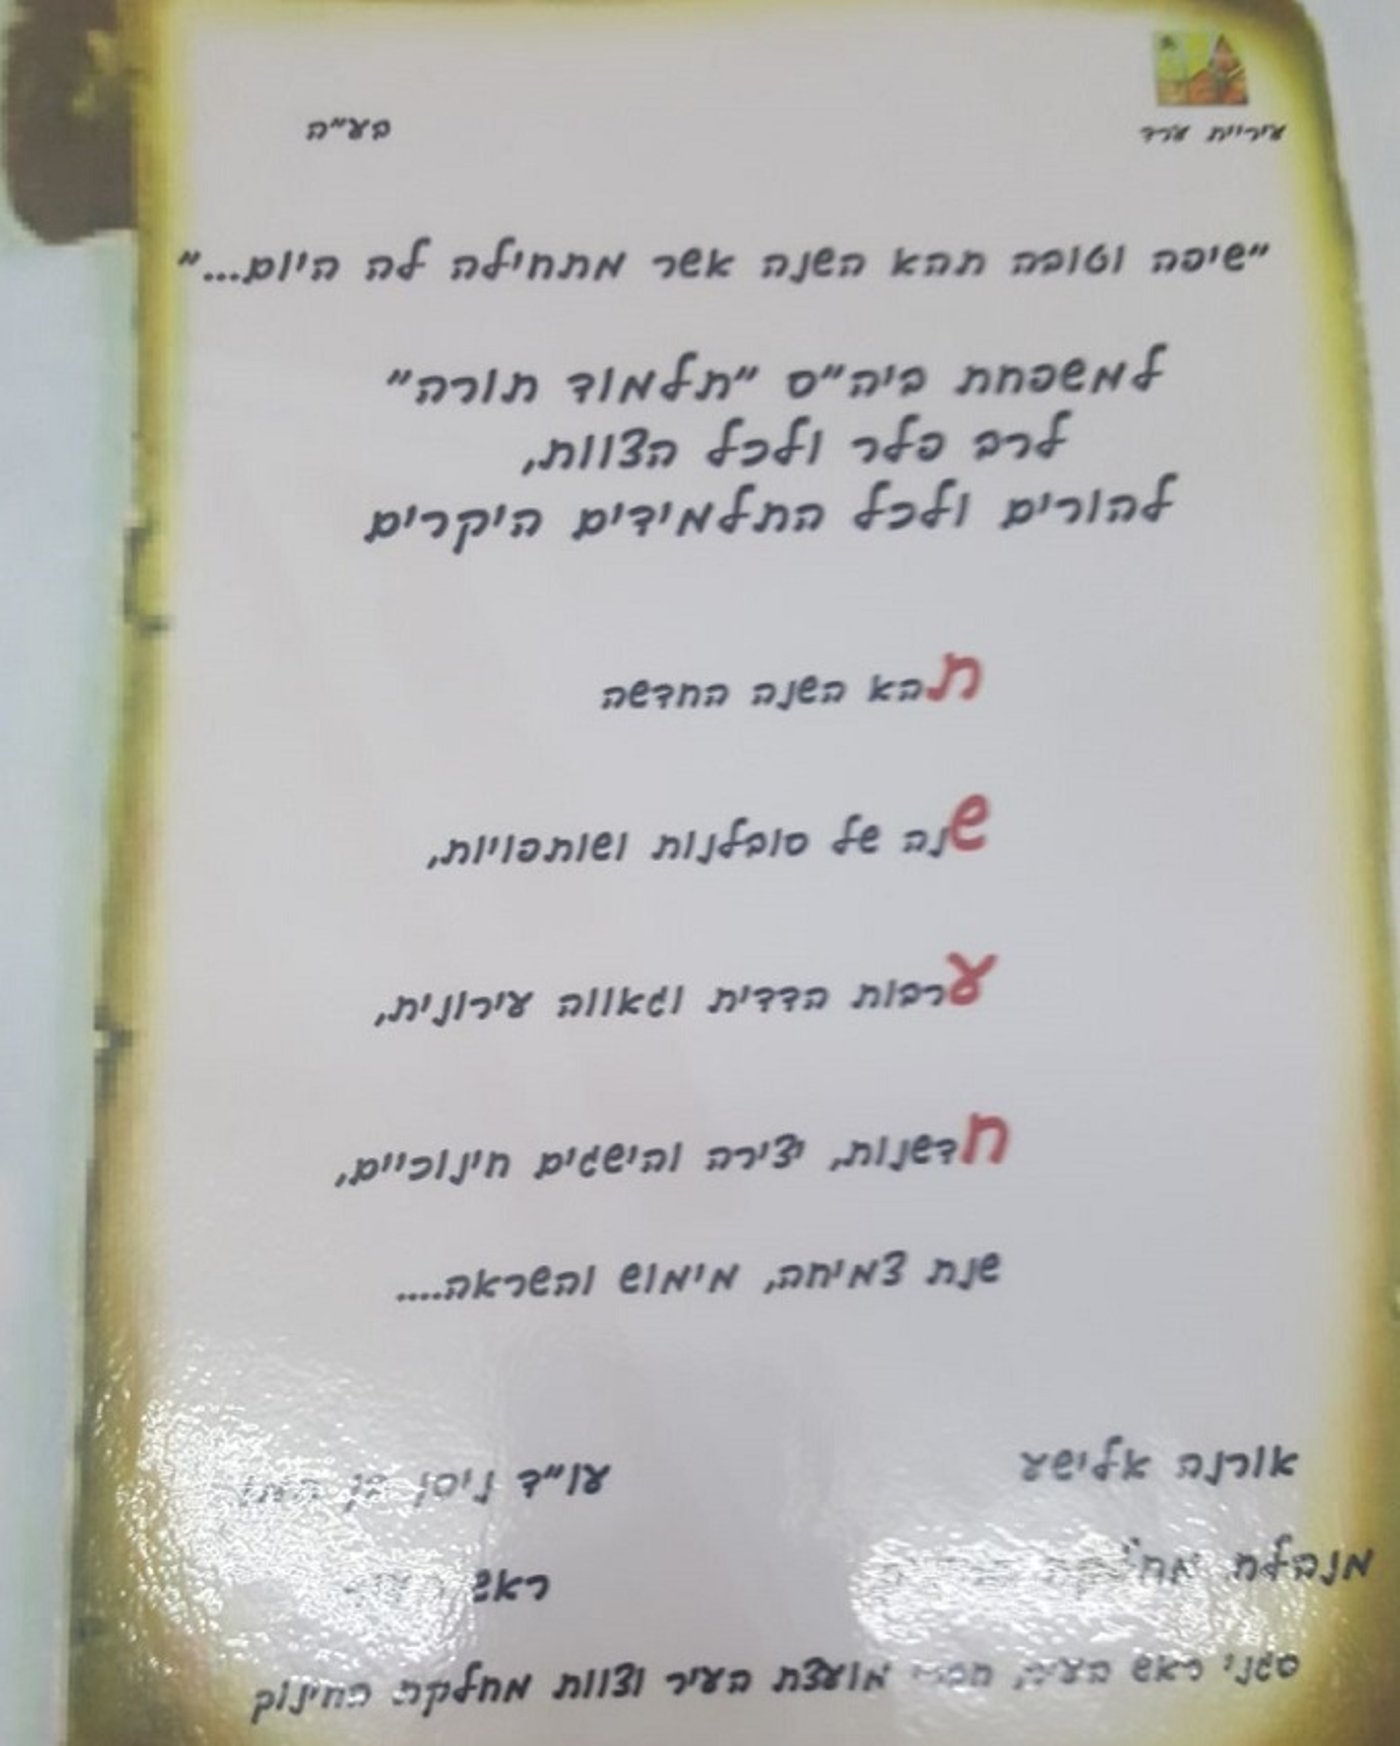 עיריית ערד
בע"ה
"שיפה וטובה תהא השנה אשר מתחילה לה היום..."
למשפחת ביה"ס "תלמוד תורה"
לרב פלר ולכל הצוות,
להורים ולכל התלמידים היקרים
תהא השנה החדשה
שנה של סובלנות ושותפויות,
ערבות הדדית וגאווה עירונית,
חדשנות, יצירה והישגים חינוכיים,
שנת צמיחה, מימוש והשראה....
אורנה אלישע
עו"ד ניסן בן
מנהלת מחלקת
ראש
סגני ראש העיר, חברי מועצת העיר וצוות מחלקת החינוך